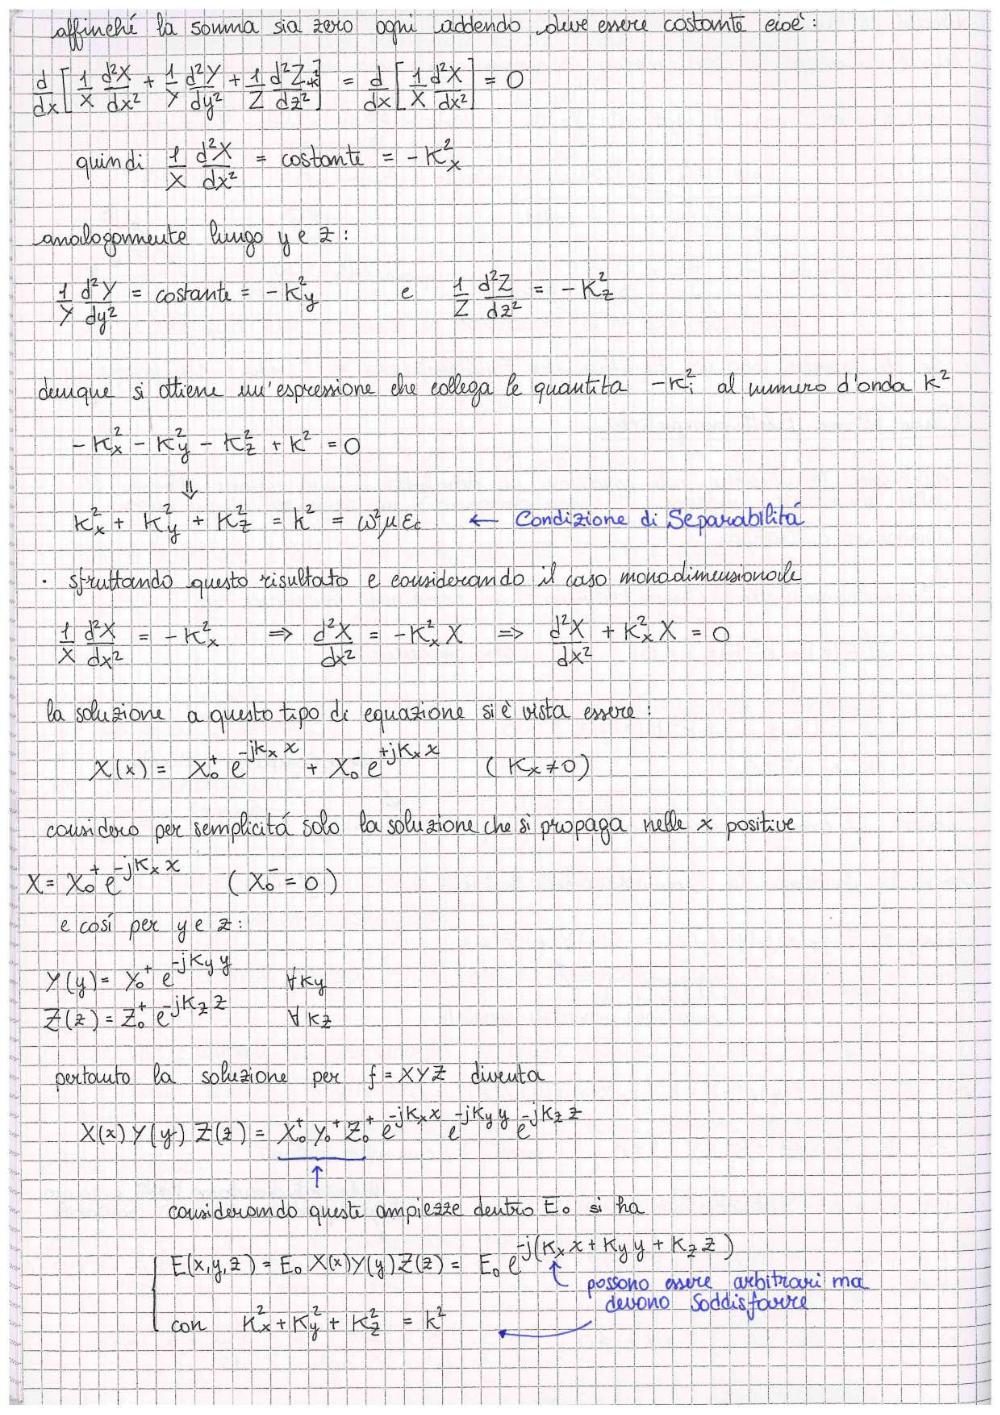 affinché la somma sia zero ogni addendo deve essere costante cioè:
d/dx [1/X d²X/dx² + 1/Y d²Y/dy² + 1/Z d²Z/dz² + k²] = d/dx [1/X d²X/dx²] = 0
quindi 1/X d²X/dx² = costante = -Kx²
analogamente lungo y e z:
1/Y d²Y/dy² = costante = -Ky² e 1/Z d²Z/dz² = -Kz²
dunque si ottiene un'espressione che collega le quantita -Ki² al numero d'onda k²
-Kx² - Ky² - Kz² + k² = 0
⇓
Kx² + Ky² + Kz² = k² = ω²μεc ← Condizione di Separabilitá
· sfruttando questo risultato e considerando il caso monodimensionale
1/X d²X/dx² = -Kx² ⇒ d²X/dx² = -Kx² X ⇒ d²X/dx² + Kx² X = 0
la soluzione a questo tipo di equazione si è vista essere:
X(x) = X₀⁺ e^(-jKx x) + X₀⁻ e^(+jKx x) (Kx≠0)
considero per semplicitá solo la soluzione che si propaga nelle x positive
X = X₀⁺ e^(-jKx x) (X₀⁻ = 0)
e cosí per y e z:
Y(y) = Y₀⁺ e^(-jKy y) ∀Ky
Z(z) = Z₀⁺ e^(-jKz z) ∀Kz
pertanto la soluzione per f = XYZ diventa
X(x) Y(y) Z(z) = X₀⁺ Y₀⁺ Z₀⁺ e^(-jKx x) e^(-jKy y) e^(-jKz z)
↑
considerando queste ampiezze dentro E₀ si ha
E(x,y,z) = E₀ X(x)Y(y)Z(z) = E₀ e^(-j(Kx x + Ky y + Kz z))
possono essere arbitrari ma
devono Soddisfarre
con Kx² + Ky² + Kz² = k²